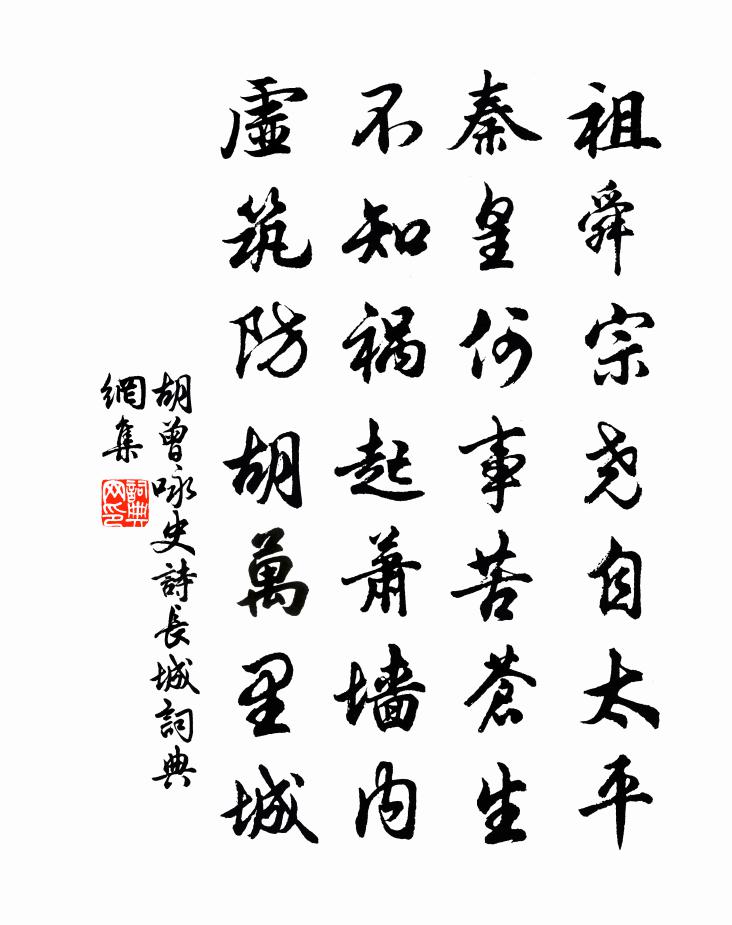 祖舜宗尧自太平
秦皇何事苦蒼生
不知祸起萧墙内
虛筑防胡萬里城
胡曾咏史詩長城詞典
網集
詞典
网印